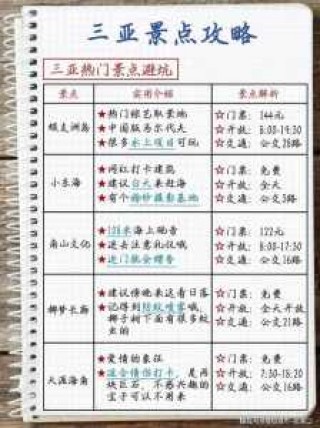 三亚景点攻略
三亚热门景点避坑
景点 实用介绍 景点解析
蜈支洲岛
★热门综艺取景地
★中国版马尔代夫
★很多水上项目可玩
☆门票: 144元
☆开放: 8:00-19:30
☆交通: 公交28路
小东海
★网红打卡
★建议白天来赶海
★有个婚纱摄影基地
☆门票: 免费
☆开放: 全天
☆交通: 公交
南山文化
★108米海上观音
★进去注意礼仪哦
★进门就会赠香
☆门票: 122元
☆开放: 8:00-17:30
☆交通: 公交16路
椰梦长廊
★建议傍晚来这看日落
★记得 防蚊喷雾哦,
椰子树下面有很多蚊
虫的
☆门票: 免费
☆开放: 全天开放
☆交通: 公交21路
天涯海角
★爱情的象征
★适合情侣打卡, 是两
块巨石, 不感兴趣的
宝子可以不用来
☆门票: 免费
☆开放: 7:30-18:20
☆交通: 公交16路